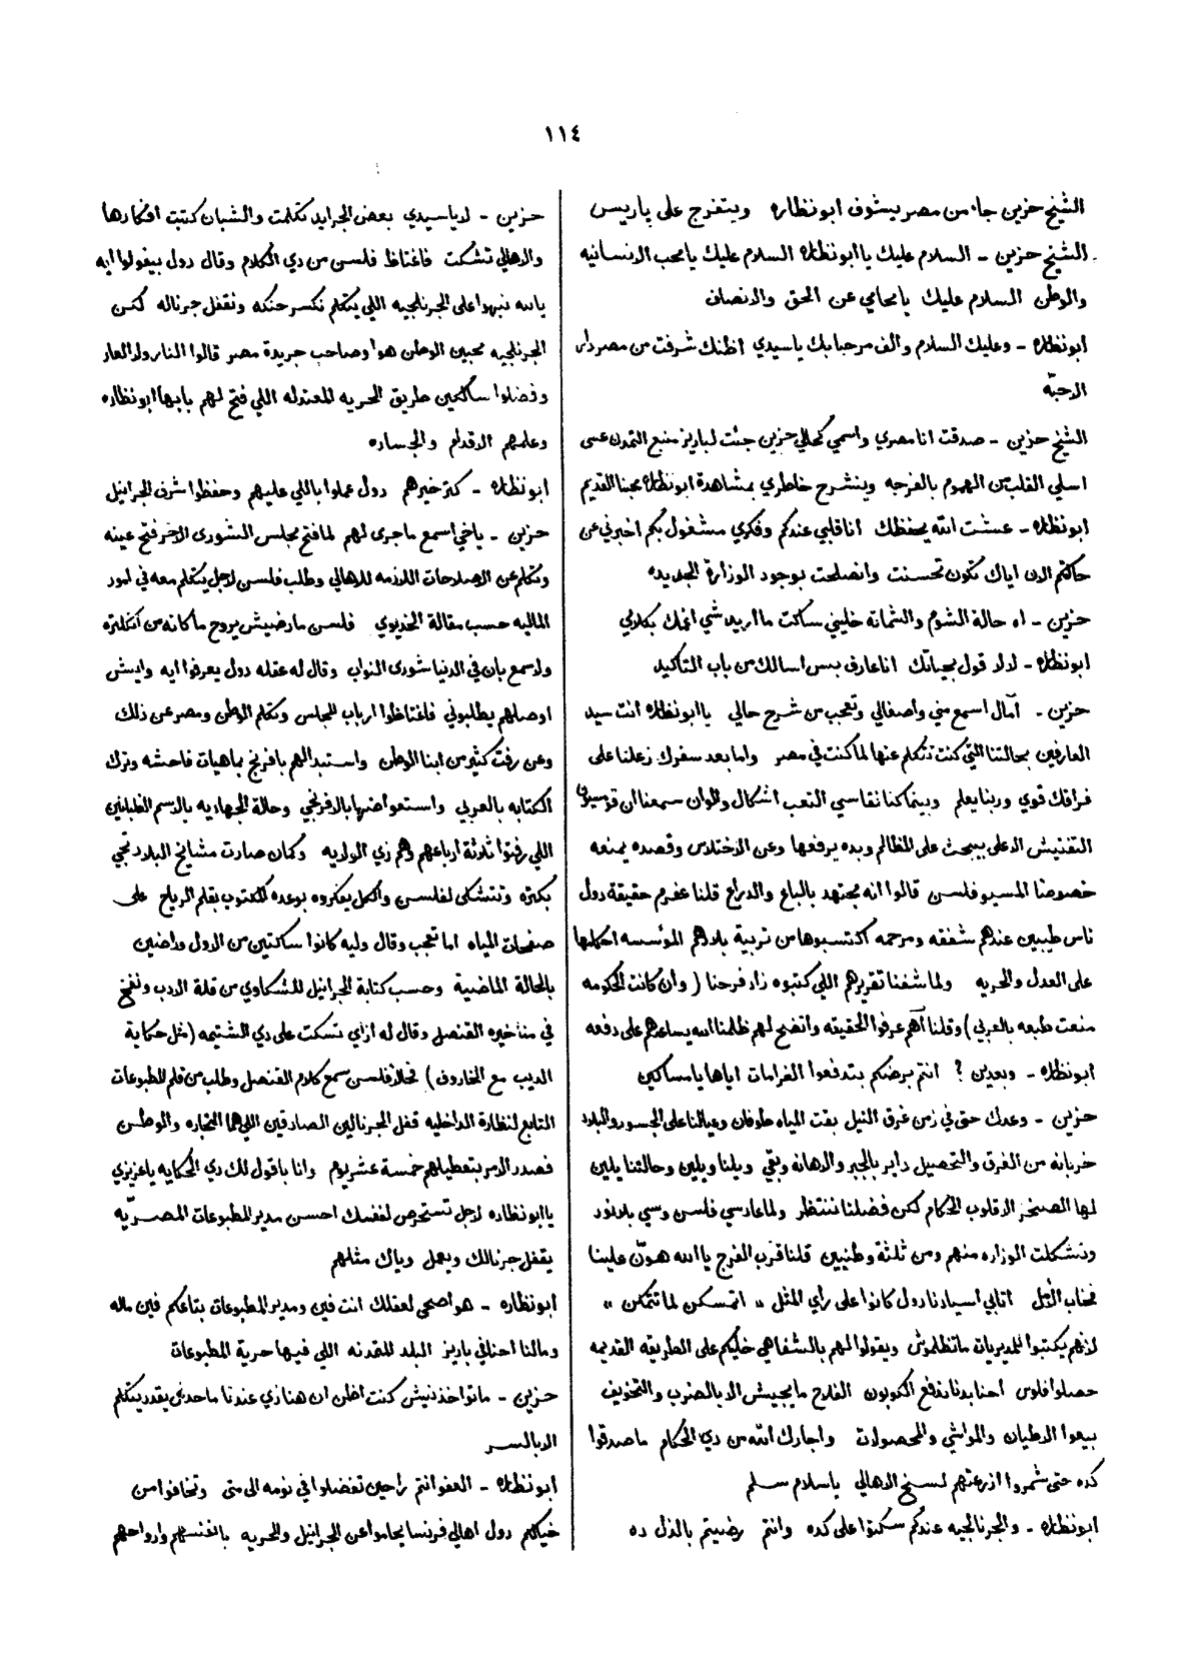 ١١٤
الشيخ حزين جاء من مصر يشوف ابو نظاره ويتفرج على پاريس
الشيخ حزين - السلام عليك يا ابو نظاره السلام عليك يا محب الانسانيه
والوطن السلام عليك يا محامي عن الحق والانصاف
ابو نظاره - وعليك السلام والف مرحبا بك يا سيدي اظنك شرفت من مصر دار
الاحبّة
الشيخ حزين - صدقت انا مصري واسمي كحالي حزين جئت لباريز منبع التمدن عسى
اسلي القلب من الهموم بالفرجه وينشرح خاطري بمشاهدة ابو نظاره محبنا القديم
ابو نظاره - عشت الله يحفظك انا قلبي عندكم وفكري مشغول بكم اخبرني عن
حالتكم الان اياك تكون تحسنت وانصلحت بوجود الوزارة الجديده
حزين - اه حالة الشوم والشماته خليني ساكت ما اريد شي اغمك بكلامي
ابو نظاره - لا لا قول بحياتك انا عارف بس اسالك من باب التاكيد
حزين - آمال اسمع مني واصغالي وتعجب من شرح حالي يا ابو نظاره انت سيد
العارفين بحالتنا التي كنت تتكلم عنها لما كنت في مصر واما بعد سفرك زعلنا على
فراقك قوي وربنا يعلم وبينما كنا نقاسي التعب اشكال والوان سمعنا ان قومسيون
التفتيش الاعلى يبحث على المظالم وبده يرفعها وعن الاختلاس وقصده يمنعه
خصوصا المسيو فلسن قالوا انه مجتهد بالباع والدراع قلنا عفرم حقيقة دول
ناس طيبين عندهم شفقه ومرحمه اكتسبوها من تربية بلادهم المؤسسه احكامها
على العدل والحريه ولما شفنا تقريرهم اللي كتبوه زاد فرحنا (وان كانت الحكومه
منعت طبعه بالعربي) وقلنا آهم عرفوا الحقيقه واتضح لهم ظلمنا الله يساعدهم على دفعه
ابو نظاره - وبعدين ؟ انتم برضكم بتدفعوا الغرامات اياها يا مساكين
حزين - وعدك حق في زمن غرق النيل بقت المياه طوفان وعيالنا على الجسور والبلاد
خربانه من الغرق والتحصيل داير بالجبر والاهانه وبقي ويلنا ويلين وحالتنا يلين
لها الصخر الا قلوب الحكام لكن فضلنا ننتظر ولما عاد سي فلسن وسي بلانور
وتشكلت الوزاره منهم ومن ثلثة وطنيين قلنا قرب الفرج يا الله هوّن علينا
فخاب الامل اتابي اسيادنا دول كانوا على رأي المثل « اتمسكن لما تتمكن »
لانهم يكتبوا للمديريات ما تظلموش ويقولوا لهم بالشفاهي خليكم على الطريقه القديمه
حصلوا فلوس احنا بدنا ندفع الكوبون الفلاح ما يجيش الا بالضرب والتخويف
بيعوا الاطيان والمواشي والمحصولات واجارك الله من دي الحكام ما صدقوا
كده حتى شمروا اذرعتهم لسلخ الاهالي يا سلام سلم
ابو نظاره - والجرنالجيه عندكم سكتوا على كده وانتم رضيتم بالذل ده
حزين - لا يا سيدي بعض الجرايد تكلمت والشبان كتبت افكارها
والاهالي تشكت فاغتاظ فلسن من دي الكلام وقال دول بيقولوا ايه
يالله نبهوا على الجرنلجيه اللي يتكلم نكسر حنكه ونقفل جرناله لكن
الجرنلجيه محبين الوطن هوا وصاحب جريدة مصر قالوا النار ولا العار
وفضلوا سالكين طريق الحريه المعتدله اللي فتح لهم بابها ابو نظاره
وعلمهم الاقدام والجساره
ابو نظاره - كتر خيرهم دول عملوا باللي عليهم وحفظوا شرف الجرانيل
حزين - ياخي اسمع ماجرى لهم لما فتح مجلس الشورى الاخر فتح عينه
وتكلم عن الاصلاحات اللازمه للاهالي وطلب فلسن لاجل يتكلم معه في امور
الماليه حسب مقالة الخديوي فلسن ما رضيش يروح ما كانه من انكلتره
ولا سمع بان في الدنيا شورى النواب وقال له عقله دول يعرفوا ايه وايش
اوصلهم يطلبوني فاغتاظوا ارباب المجلس وتكلم الوطن ومصر عن ذلك
وعن رفت كثير من ابنا الوطن واستبدالهم بافرنج بماهيات فاحشه وترك
الكتابه بالعربي واستعواضها بالافرنجي وحالة الجهاديه بالاسم الظباطين
اللي رفتوا ثلاثة ارباعهم وهم زي الولايه وكمان صارت مشايخ البلاد تجي
بكتره وتتشكى لفلسن والكل يفكروه بوعده المكتوب بقلم الرياح على
صفحات المياه اما تعجب وقال وليه كانوا ساكتين من الاول وراضين
بالحالة الماضية وحسب كتابة الجرانيل للشكاوي من قلة الادب ونفخ
في مناخيره القنصل وقال له ازاي تسكت على دي الشتيمه (مثل حكاية
الديب مع الخاروف) فحالا فلسن سمع كلام القنصل وطلب من قلم المطبوعات
التابع لنظارة الداخليه قفل الجرنالين الصادقين اللي هما التجاره والوطن
فصدر الامر بتعطيلهم خمسة عشر يوم وانا باقول لك دي الحكايه يا عزيزي
يا ابو نظاره لاجل تستحرص لنفسك احسن مدير المطبوعات المصريّه
يقفل جرنالك ويعمل وياك مثلهم
ابو نظاره - هو اصحي لعقلك انت فين ومدير المطبوعات بتاعكم فين ماله
ومالنا احنا في باريز البلد المتمدنه اللي فيها حرية المطبوعات
حزين - ما تواخذنيش كنت اظن ان هنا زي عندنا ما حدش يقدر يتكلم
الا بالسر
ابو نظاره - العفو انتم راحين تفضلوا في نومه الى متى وتخافوا من
خيالكم دول اهالي فرنسا يحاموا عن الجرانيل والحريه بانفسهم وارواحهم